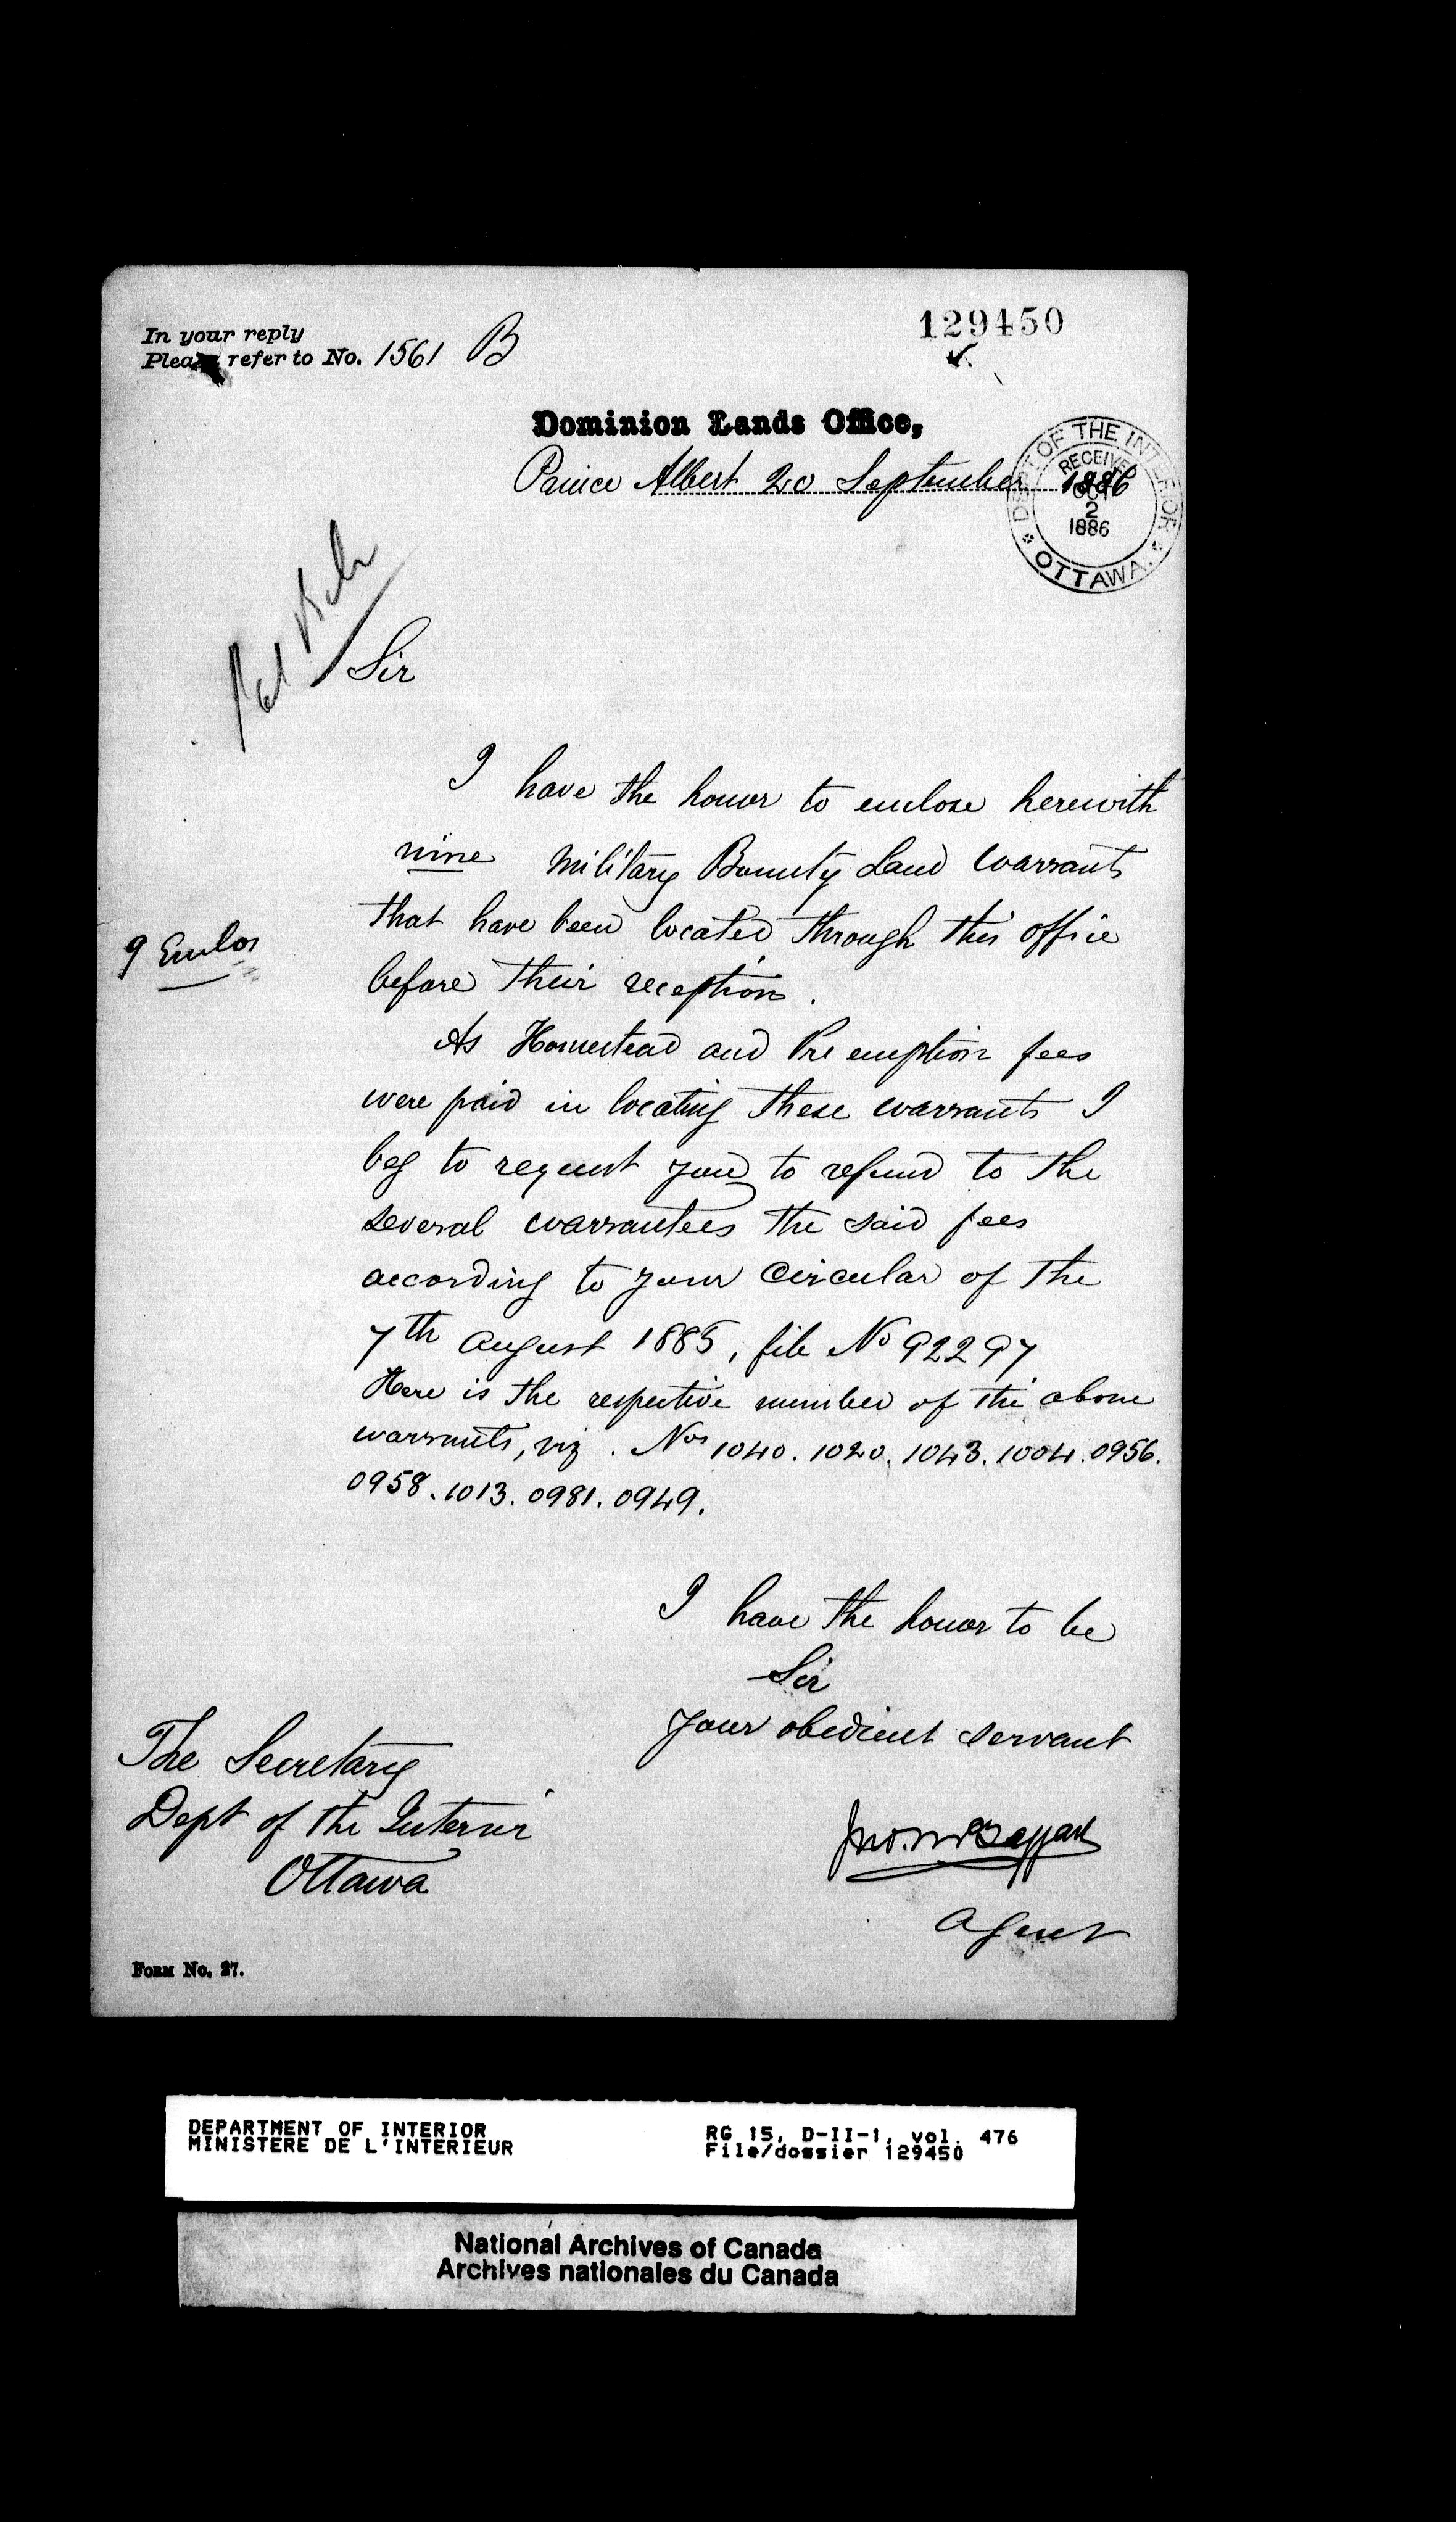 In your reply
Please refer to No. 1561 B
129450
Dominion Lands Office,
Prince Albert 20 September 1886
DEPT OF THE INTERIOR
RECEIVED
OCT
2
1886
OTTAWA.
Sir
I have the honor to enclose herewith
nine Military Bounty Land Warrants
that have been located through this office
9 Enclos
before their reception.
As Homestead and Pre emption fees
were paid in locating these warrants I
beg to request you to refund to the
several warrantees the said fees
according to your Circular of the
7th August 1885, file No 92297
Here is the respective number of the above
warrants, viz. Nos 1040. 1020. 1043. 1004. 0956.
0958. 1013. 0981. 0949.
I have the honor to be
Sir
your obedient servant
The Secretary
Dept of the Interior
Ottawa
Agent
Form No. 27.
DEPARTMENT OF INTERIOR
MINISTERE DE L'INTERIEUR
RG 15, D-II-1, vol. 476
File/dossier 129450
National Archives of Canada
Archives nationales du Canada